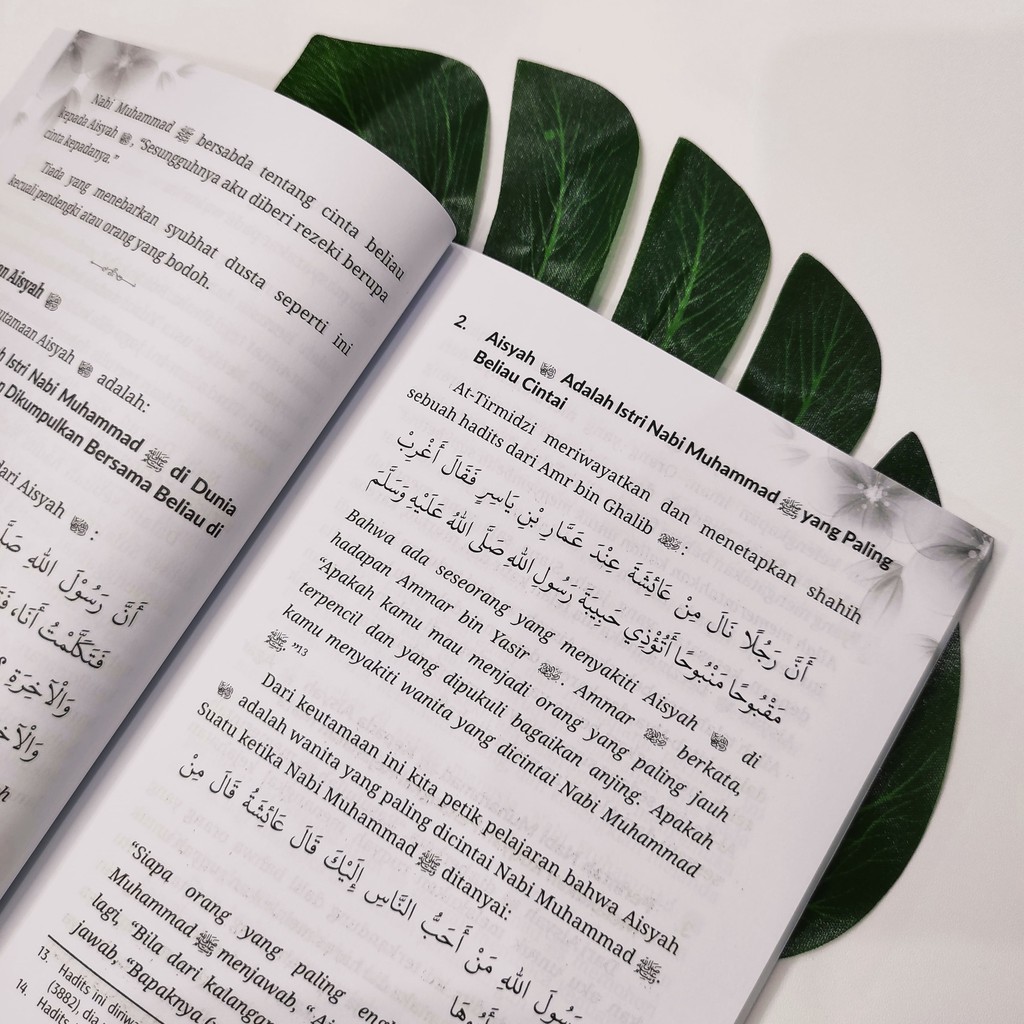 Nabi Muhammad ﷺ bersabda tentang cinta beliau
kepada Aisyah, "Sesungguhnya aku diberi rezeki berupa
cinta kepadanya."
Tiada yang menebarkan syubhat dusta seperti ini
kecuali pendengki atau orang yang bodoh.
Aisyah
Aisyah adalah:
Istri Nabi Muhammad ﷺ di Dunia
Dikumpulkan Bersama Beliau di
dari Aisyah :
أَنَّ رَسُوْلَ اللهِ
فَتَكَلَّمْتُ أَنَا،
وَالْآخِرَةِ
2. Aisyah Adalah Istri Nabi Muhammad ﷺ yang Paling
Beliau Cintai
At-Tirmidzi meriwayatkan dan menetapkan shahih
sebuah hadits dari Amr bin Ghalib :
أَنَّ رَجُلًا نَالَ مِنْ عَائِشَةَ عِنْدَ عَمَّارِ بْنِ يَاسِرٍ فَقَالَ أَغْرِبْ
مَقْبُوحًا مَنْبُوحًا أَتُؤْذِي حَبِيبَةَ رَسُولِ اللهِ صَلَّى اللهُ عَلَيْهِ وَسَلَّمَ
Bahwa ada seseorang yang menyakiti Aisyah di
hadapan Ammar bin Yasir . Ammar berkata,
"Apakah kamu mau menjadi orang yang paling jauh
terpencil dan yang dipukuli bagaikan anjing. Apakah
kamu menyakiti wanita yang dicintai Nabi Muhammad
ﷺ."13
Dari keutamaan ini kita petik pelajaran bahwa Aisyah
adalah wanita yang paling dicintai Nabi Muhammad ﷺ.
Suatu ketika Nabi Muhammad ﷺ ditanyai:
رَسُوْلَ اللهِ مَنْ أَحَبُّ النَّاسِ إِلَيْكَ قَالَ عَائِشَةُ قَالَ مِنْ
"Siapa orang yang paling
Muhammad ﷺ menjawab,
lagi, "Bila dari kalangan
jawab, "Bapaknya
13. Hadits ini
(3882),
14. Hadits